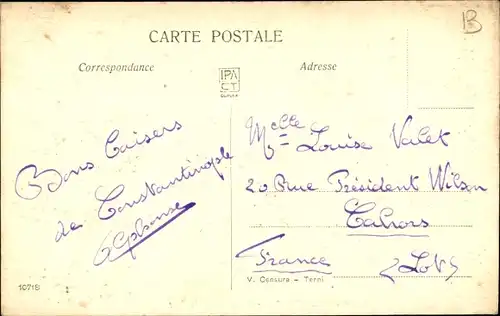 B
CARTE POSTALE
Correspondance
Adresse
IPA
CT
Bons Baisers
de Constantinople
Alphonse
Melle Louise Valet
20 Rue Président Wilson
Cahors
France
(Lot)
10718
V. Censura - Terni